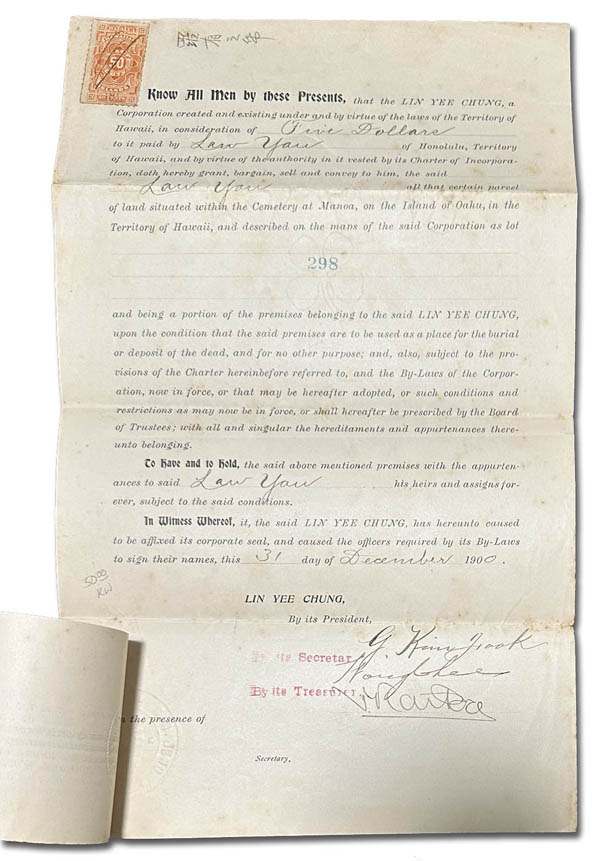 50
Know All Men by these Presents, that the LIN YEE CHUNG, a
Corporation created and existing under and by virtue of the laws of the Territory of
Hawaii, in consideration of Five Dollars
to it paid by Law Yau of Honolulu, Territory
of Hawaii, and by virtue of the authority in it vested by its Charter of Incorpora-
tion, doth hereby grant, bargain, sell and convey to him, the said
Law Yau all that certain parcel
of land situated within the Cemetery at Manoa, on the Island of Oahu, in the
Territory of Hawaii, and described on the maps of the said Corporation as lot
298
and being a portion of the premises belonging to the said LIN YEE CHUNG,
upon the condition that the said premises are to be used as a place for the burial
or deposit of the dead, and for no other purpose; and, also, subject to the pro-
visions of the Charter hereinbefore referred to, and the By-Laws of the Corpor-
ation, now in force, or that may be hereafter adopted, or such conditions and
restrictions as may now be in force, or shall hereafter be prescribed by the Board
of Trustees; with all and singular the hereditaments and appurtenances there-
unto belonging.
To Have and to Hold, the said above mentioned premises with the appurten-
ances to said Law Yau his heirs and assigns for-
ever, subject to the said conditions.
In Witness Whereof, it, the said LIN YEE CHUNG, has hereunto caused
to be affixed its corporate seal, and caused the officers required by its By-Laws
to sign their names, this 31 day of December 1900.
50.00
RW
LIN YEE CHUNG,
By its President,
By its Secretar
By its Treasurer,
n the presence of
Secretary.